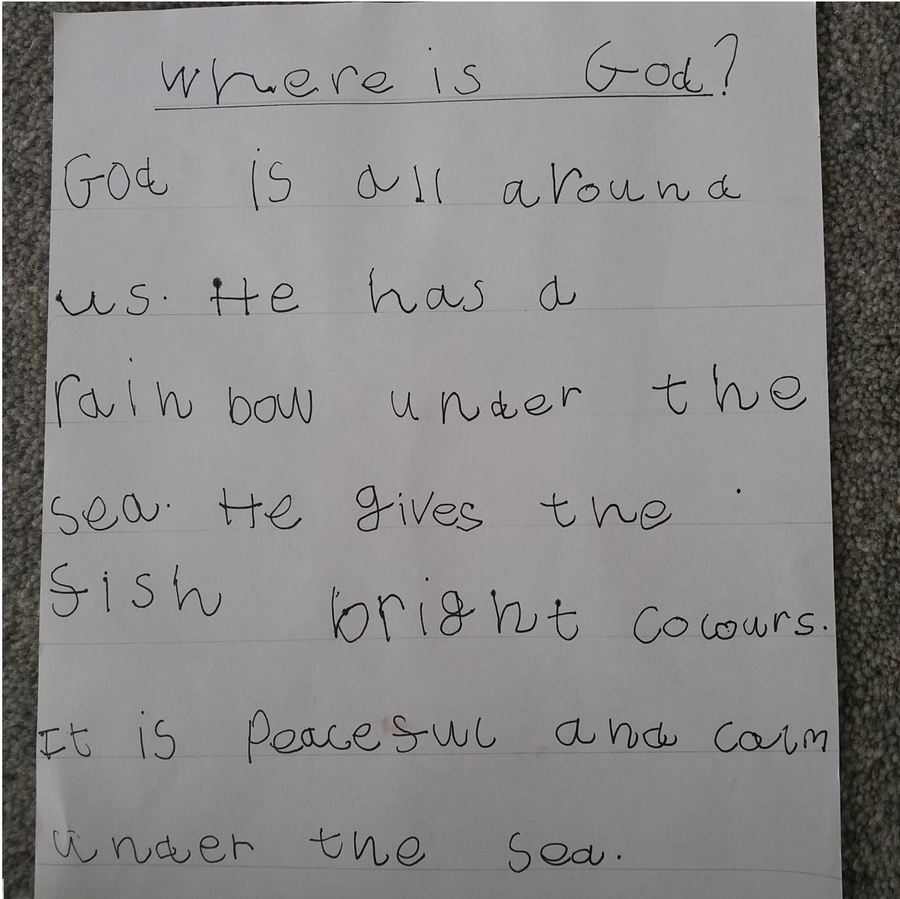 Where is God?
God is all around
us. He has a
rainbow under the
sea. He gives the
fish bright colours.
It is peaceful and calm
under the sea.